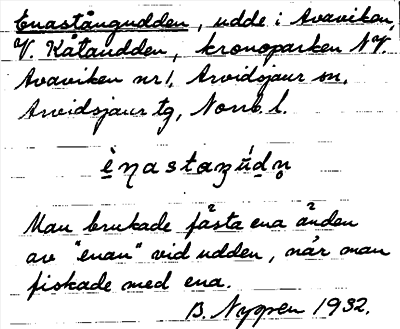 Enastångudden, udde i Avaviken,
V. Kåtaudden, kronoparken N.V.
Avaviken nr 1, Arvidsjaur sn,
Arvidsjaur tg, Norrb. l.
Man brukade fästa ena änden
av "enan" vid udden, når man
fiskade med ena.
B. Nygren 1932.